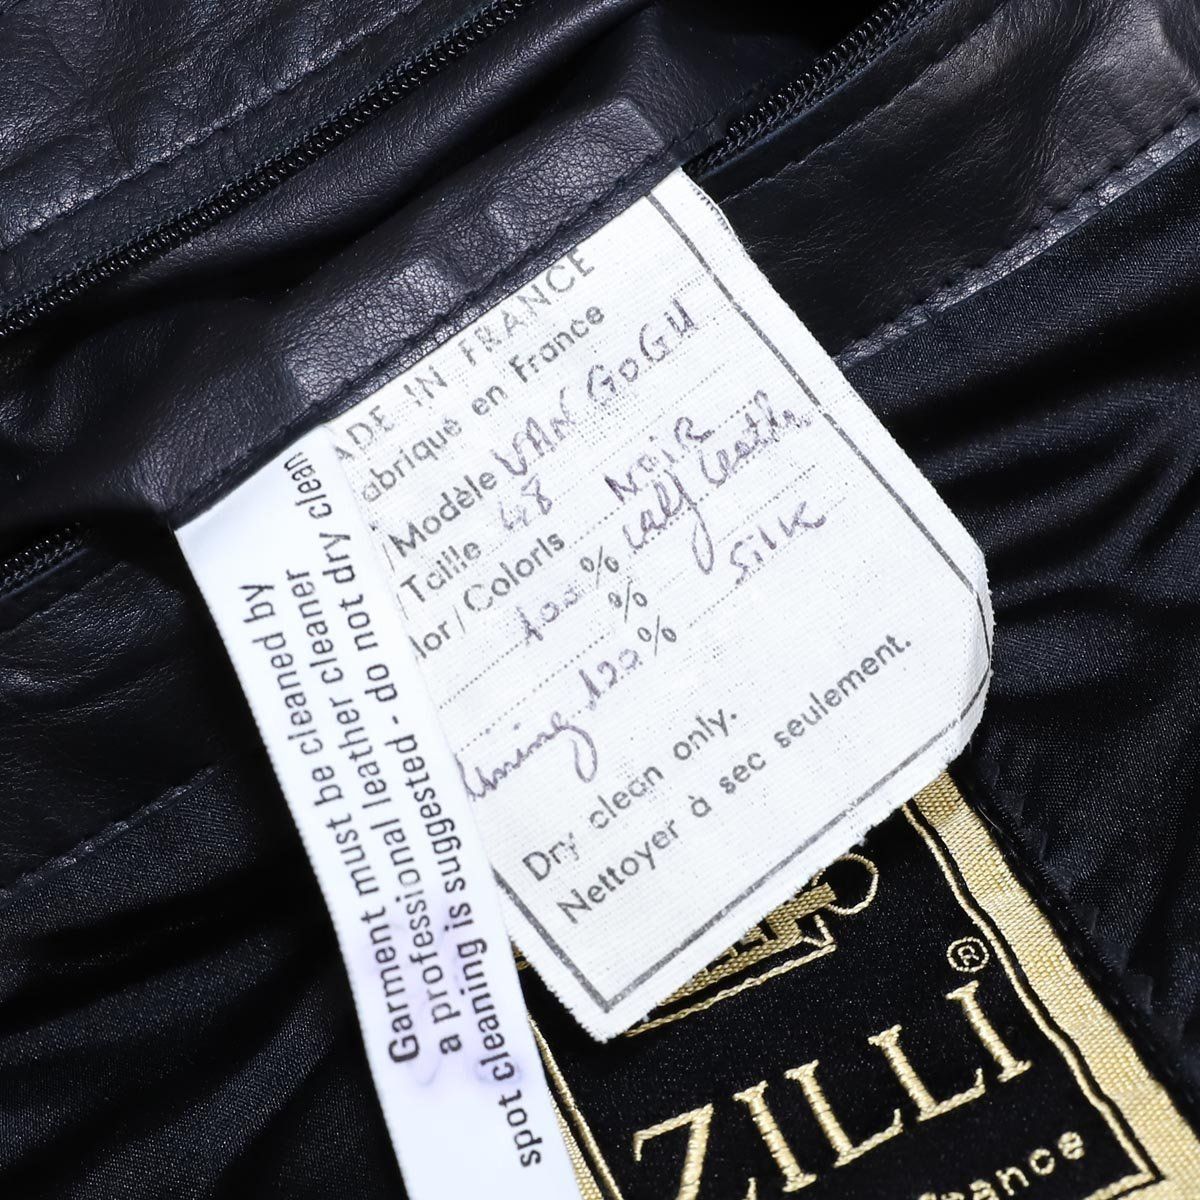 ADE IN FRANCE
abriqué en France
/Modèle VAN GOGH
/Taille 48
lor/Coloris NOIR
100 % calf leather
%
lining 100 % silk
Dry clean only.
Nettoyer à sec seulement.
Garment must be cleaned by
a professional leather cleaner
spot cleaning is suggested - do not dry clean
ZILLI ®
rance